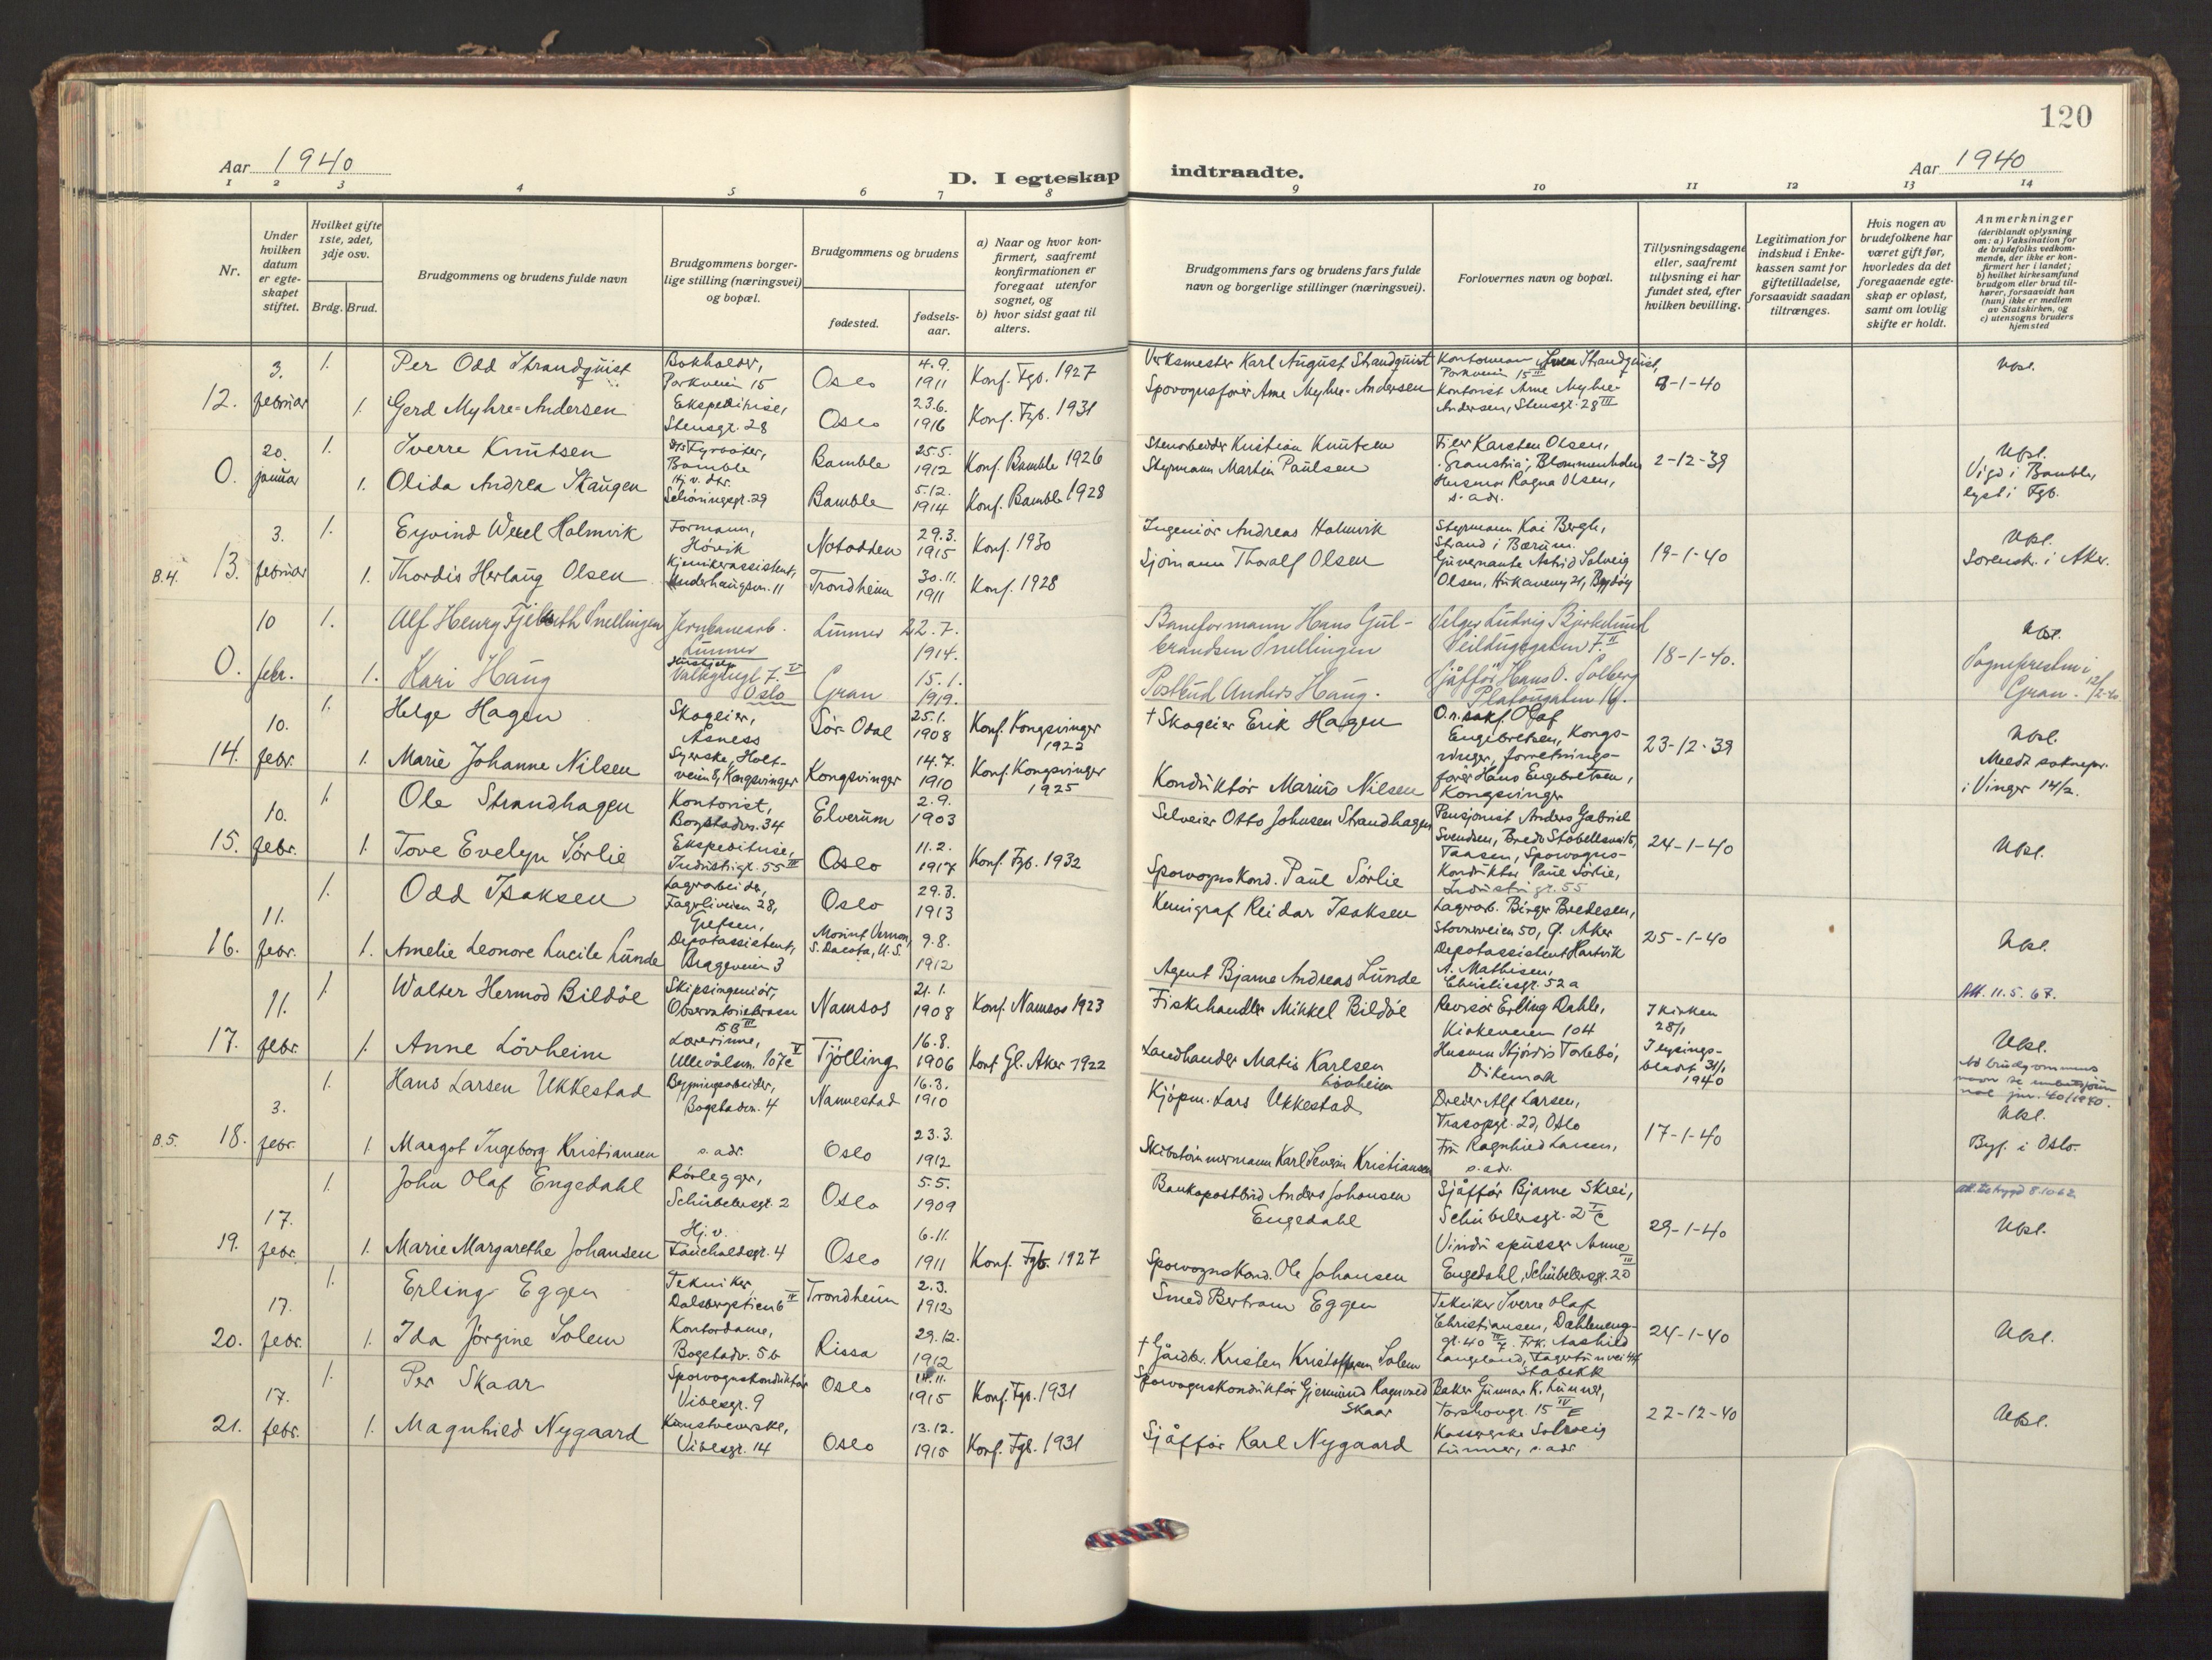 120
Aar 1940
D. I egteskap indtraadte.
Aar 1940
1 2 3 4 5 6 7 8 9 10 11 12 13 14
Nr.
Under hvilken datum er egte-skapet stiftet.
Hvilket gifte 1ste, 2det, 3dje osv.
Brdg. Brud.
Brudgommens og brudens fulde navn
Brudgommens borger-lige stilling (næringsvei) og bopæl.
Brudgommens og brudens
fødested.
fødsels-aar.
a) Naar og hvor kon-firmert, saafremt konfirmationen er foregaat utenfor sognet, og
b) hvor sidst gaat til alters.
Brudgommens fars og brudens fars fulde navn og borgerlige stillinger (næringsvei).
Forlovernes navn og bopæl.
Tillysningsdagene eller, saafremt tillysning ei har fundet sted, efter hvilken bevilling.
Legitimation for indskud i Enke-kassen samt for giftetilladelse, forsaavidt saadan tiltrænges.
Hvis nogen av brudefolkene har været gift før, hvorledes da det foregaaende egte-skap er opløst, samt om lovlig skifte er holdt.
Anmerkninger (deriblandt oplysning om: a) Vaksination for de brudefolks vedkom-mende, der ikke er kon-firmert her i landet; b) hvilket kirkesamfund brudgom eller brud til-hører, forsaavidt han (hun) ikke er medlem av Statskirken, og c) utensogns bruders hjemsted
12. 3. februar
1. Per Odd Strandquist
Bokholder, Parkveien 15
Oslo 4.9. 1911
Konf. Fgb. 1927
Verksmester Karl August Strandquist
Parkveien 15 III
8-1-40
Upl.
1. Gerd Myhre-Andersen
Ekspeditrise, Stensgt. 28
Oslo 23.6. 1916
Konf. Fgb. 1931
Sporvognsfører Arne Myhre-Andersen
Kontorist Arne Myhre-Andersen, Stensgt. 28 III
0. 20. januar
1. Sverre Knutsen
Fyrbøter, Bamble
Bamble 25.5. 1912
Konf. Bamble 1926
Stenarbeider Kristian Knutsen
Filer Karsten Olsen, Blommenholm
2-12-39
Upl.
Vigd i Bamble,
lyst i Fgb.
1. Olida Andrea Skaugen
Schøningsgt. 29
Bamble 5.12. 1914
Konf. Bamble 1928
Styrmann Martin Paulsen
Husmor Ragna Olsen, s. adr.
B.4. 13. 3. februar
1. Eyvind Holmvik
Formann, Høvik
Notodden 29.3. 1915
Konf. 1930
Ingeniør Andreas Holmvik
Styrmann Kai Bergh, Strand i Bærum.
19-1-40
Upl.
Sorensk. i Aker.
1. Thordis Herlaug Olsen
Trondheim 30.11. 1911
Konf. 1928
Sjømann Thoralf Olsen
Guvernante Astrid Solveig Olsen, Hukaveny 21, Bygdøy
0. 10 febr.
1. Alf Henry Snellingen
Jernbanearb. Lunner
Lunner 22.7. 1914.
Baneformann Hans Gulbrandsen Snellingen
Selger Ludvig Bjerkelund
18-1-40.
Upl.
Sogneprestin i
Gran. 12/2-40
1. Kari Haug
Oslo
Gran 15.1. 1919.
Postbud Anders Haug.
Sjåffør Hans O. Solberg Platousgaten 16.
14. 10. febr.
1. Helge Hagen
Skogeier, Åsnes
Sør-Odal 25.1. 1908
Konf. Kongsvinger 1922
† Skogeier Erik Hagen
O.r.sakf. Olaf Engebretsen, Kongsvinger,
23-12-39
Upl.
Meldt soknepr.
i Vinger 14/2.
1. Marie Johanne Nilsen
Syerske, Holtveien 8, Kongsvinger
Kongsvinger 14.7. 1910
Konf. Kongsvinger 1925
Konduktør Marius Nilsen
forretningsfører Hans Engebretsen, Kongsvinger
15. 10. febr.
1. Ole Strandhagen
Kontorist, Bogstadvn. 34
Elverum 2.9. 1903
Selveier Otto Johnsen Strandhagen
Pensjonist Anders Gabriel Svendsen, Bredo Stabellsvei 15, Taasen,
24-1-40
Upl.
1. Tove Evelyn Sørlie
Ekspeditrise, Industrigt. 55 III
Oslo 11.2. 1917
Konf. Fgb. 1932
Sporvognskond. Paul Sørlie
Sporvognskonduktør Paul Sørlie, Industrigt. 55
16. 11. febr.
1. Odd Isaksen
Lagerarbeider, Fagerliveien 28, Grefsen,
Oslo 29.3. 1913
Kemigraf Reidar Isaksen
Lagerarb. Birger Bredesen, Stovnerveien 50, Ø. Aker
25-1-40
Upl.
1. Amelie Leonore Lucile Lunde
Depotassistent, Brageveien 3
Mount Vernon, S. Dacota, U.S. 9.8. 1912
Agent Bjarne Andreas Lunde
Depotassistent Hartvik A. Mathisen, Christiesgt. 52a
17. 11. febr.
1. Walter Hermod Bildøe
Skipsingeniør, Observatorieterrasse 15 B III
Namsos 21.1. 1908
Konf. Namsos 1923
Fiskehandler Mikkel Bildøe
Revisor Erling Dahle, Kirkeveien 104
I kirken 28/1
Att. 11.5.67.
Upl.
1. Anne Løvheim
Lærerinne, Ullevålsvn. 107c V
Tjølling 16.8. 1906
Konf Gl. Aker 1922
Landhandler Matis Karlsen Løvheim
Husmor Hjørdis Torlebø, Dikemark
I lysingsbladet 31/1 1940
B.5. 18. 3. febr.
1. Hans Larsen Ukkestad
Bygningsarbeider, Bogstadvn. 4
Nannestad 16.3. 1910
Kjøpm. Lars Ukkestad
Dreier Alf Larsen, Oslo
17-1-40
Upl.
Byf. i Oslo.
1. Margot Ingeborg Kristiansen
s. adr.
Oslo 23.3. 1912
Skibstømmermann Karl Severin Kristiansen
Fru Ragnhild Larsen, s. adr.
19. 17. febr.
1. John Olaf Engedahl
Rørlegger, Schübelersgt. 2
Oslo 5.5. 1909
Bankapostbud Anders Johansen Engedahl
Sjåffør Bjarne Skrei, Schübelersgt. 2 c
29-1-40
Upl.
1. Marie Margarethe Johansen
Hj. v. Fauchaldsgt. 4
Oslo 6.11. 1911
Konf. Fgb. 1927
Sporvognskond. Ole Johansen
Vinduspusser Arne Engedahl, Schübelersgt. 2D III
20. 17. febr.
1. Erling Eggen
Tekniker, Dalsbergstien 6 IV
Trondheim 2.3. 1912
Smed Bertram Eggen
Tekniker Sverre Olaf Christiansen,
24-1-40
Upl.
1. Ida Jørgine Solem
Kontordame, Bogstadv. 5b
Rissa 29.12. 1912
† Gårdbr. Kristen Kristoffersen Solem
Frk. Aashild Langeland, Stabekk
21. 17. febr.
1. Per Skaar
Sporvognskonduktør Vibesgt. 9
Oslo 14.11. 1915
Konf. Fgb. 1931
Sporvognskonduktør Gjermund Ragnvald Skaar
Baker Gunnar K. Lunner, Torshovgt. 15 IV E
22-12-40
Upl.
1. Magnhild Nygaard
Kunstveverske, Vibesgt. 14
Oslo 13.12. 1915
Konf. Fgb. 1931
Sjåffør Karl Nygaard
Kasserske Solveig Lunner, s. adr